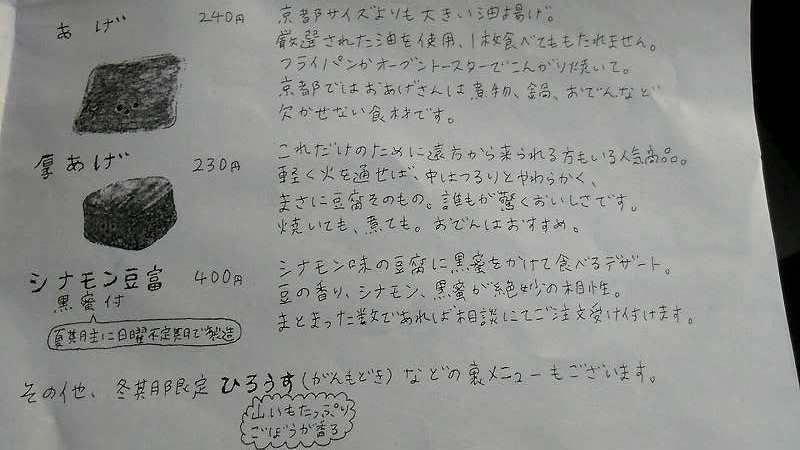 あげ 240円
京都サイズよりも大きい油揚げ。
厳選された油を使用、1枚食べてももたれません。
フライパンかオーブントースターでこんがり焼いて。
京都ではおあげさんは煮物、鍋、おでんなど
欠かせない食材です。
厚あげ 230円
これだけのために遠方から来られる方もいる人気商品。
軽く火を通せば、中はつるりとやわらかく、
まさに豆腐そのもの。誰もが驚くおいしさです。
焼いても、煮ても。おでんはおすすめ。
シナモン豆富 400円
黒蜜付
夏期主に日曜不定期で製造
シナモン味の豆腐に黒蜜をかけて食べるデザート。
豆の香り、シナモン、黒蜜が絶妙の相性。
まとまった数であれば相談にてご注文受け付けます。
その他、冬期限定 ひろうす(がんもどき)などの裏メニューもございます。
山いもたっぷり
ごぼうが香る